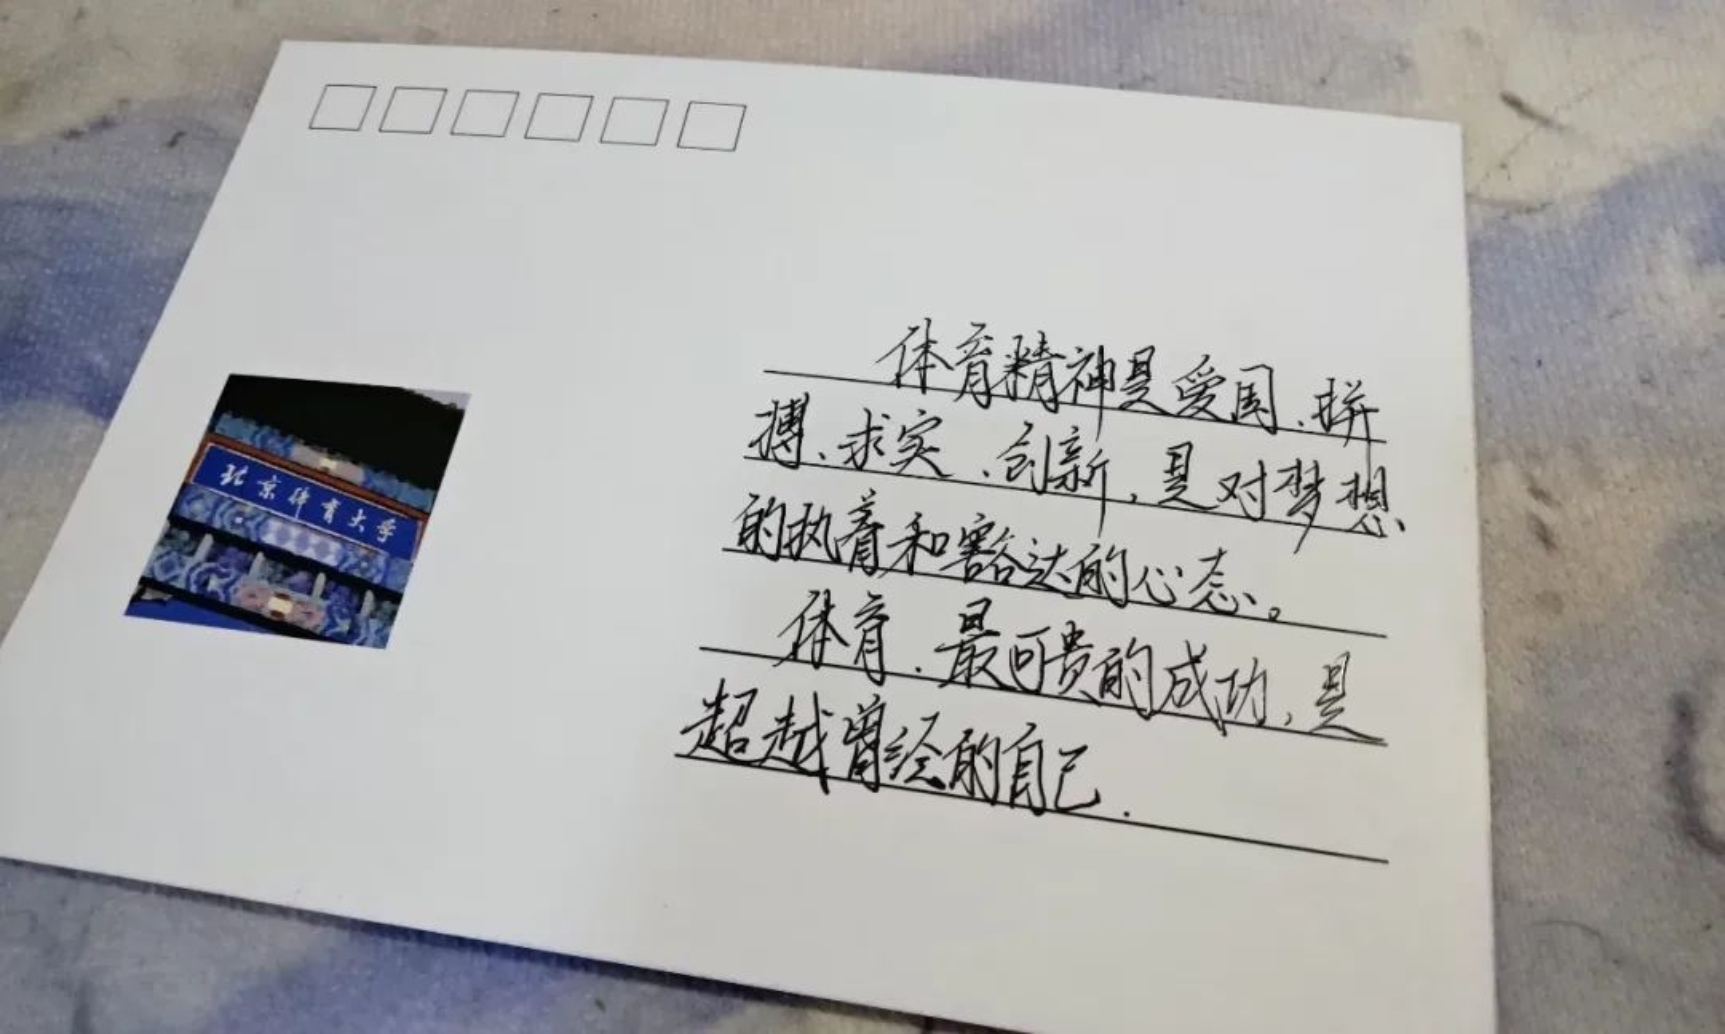 北京体育大学
体育精神是爱国、拼
搏、求实、创新,是对梦想
的执着和豁达的心态。
体育.最可贵的成功,是
超越曾经的自己.